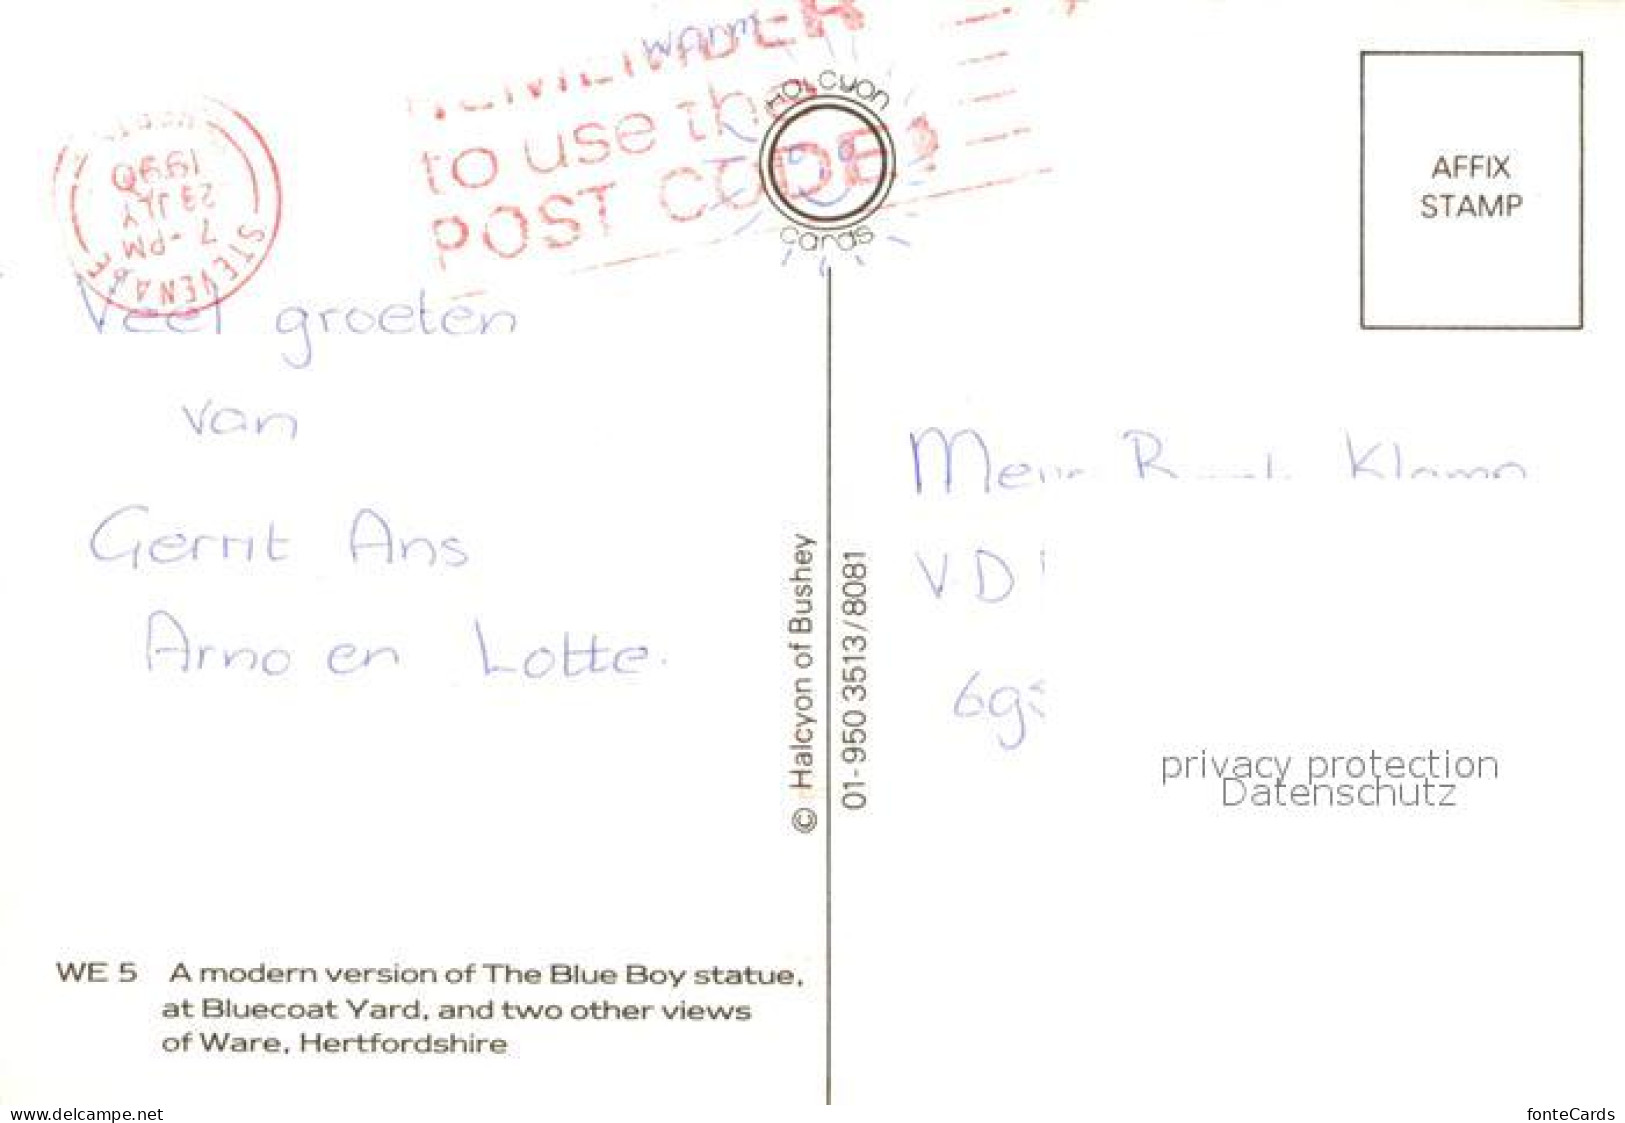 warm
REMEMBER
to use the
POST CODE
Halcyon
cards
1990
23 JLY
7 - PM
STEVENAGE
AFFIX
STAMP
Veel groeten
van
Gerrit Ans
Arno en Lotte.
V.D
© Halcyon of Bushey
01-950 3513/8081
privacy protection
Datenschutz
WE 5 A modern version of The Blue Boy statue,
at Bluecoat Yard, and two other views
of Ware, Hertfordshire
www.delcampe.net
fonteCards